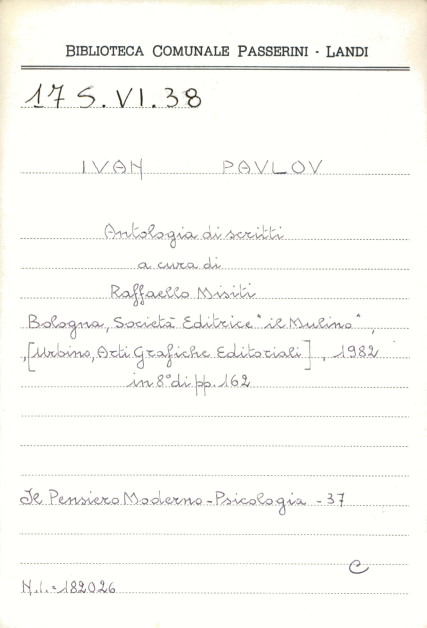 BIBLIOTECA COMUNALE PASSERINI - LANDI
17 S. VI. 38
IVAN PAVLOV
Antologia di scritti
a cura di
Raffaello Misiti
Bologna, Società Editrice "il Mulino",
,[Urbino, Arti Grafiche Editoriali], 1982
in 8° di pp. 162
Il Pensiero Moderno - Psicologia - 37
C
N.I. = 182026